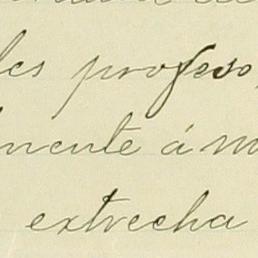 les profeso,
mente á m
extrecha